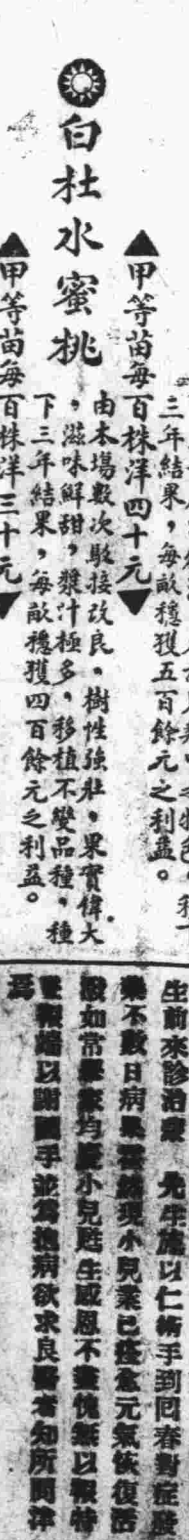 三年結果，每畝穩獲五百餘元之利益。
▲甲等苗每百株洋四十元▼
白杜水蜜桃
由本場數次駁接改良。樹性強壯。果實偉大
，滋味鮮甜，漿汁極多，移植不變品種，種
下三年結果，每畝穩獲四百餘元之利益。
▲甲等苗每百株洋三十元▼
生前來診治 先生施以仁術手到回春對症發
藥不數日病果現小兒業已痊愈元氣恢復活
如常舉家均慶小兒甦生感恩不盡愧無以報特
登報端以謝國手並為抱病欲求良醫者知所問津
焉